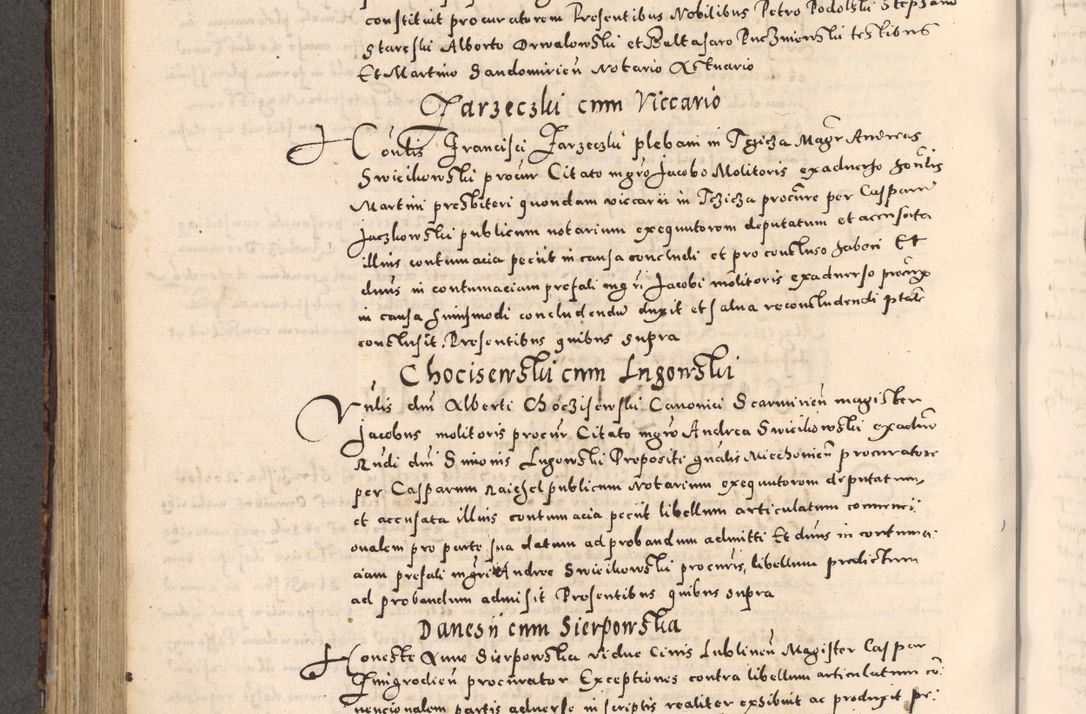 constituit procuratorem Presentibus Nobilibus Petro Podolski Stephano
Staręski Alberto Drwalowski et Baltasaro Puczniowski testibus
Et Martino Sandomirień Notario Actuario
Jarzeczki cum Viccario
Honlis Francisci Jarzeczki plebani in Tczicza Magr Andreas
Swiecikowski procur Citato mgro Jacobo Molitoris exaduerso honlis
Martini presbiteri quondam viccarii in Tczicza procure per Casparu
Jaczkowski publicum notarium exequutorem deputatum et accusata
illius contumacia peciit in causa concludi et pro concluso haberi Et
dnus in contumaciam prefati mgri Jacobi molitoris exaduerso procuris
in causa huiusmodi concludendu duxit et salua reconcludendi ptate
conclusit. Presentibus quibus supra
Chocisewski cum Lugowski
Vnlis dni Alberti Choczisewski Canonici Scarmirień magister
Jacobus molitoris procur Citato mgro Andrea Swiecikowski exadur
Rndi dni Simonis Lugowski Propositi gnalis Miechouień procuratore
per Casparum Raichel publicum Notarium exequutorem deputatum
et accusata illius contumacia peciit libellum articulatum conuenci
onalem pro parte sua datum ad probandum admitti Et dnus in contuma
ciam prefati mgri Andree Swiecikowski procuris, libellum predictum
ad probandum admisit Presentibus quibus supra
Danesii cum Sierpowska
Honeste Anne Sierpowska vidue Ciuis Lublineń Magister Casper
Zmigrodień procurator Exceptiones contra libellum articulatum co
nencionalem partis aduerse in scriptis realiter exhibuit ac produxit pe